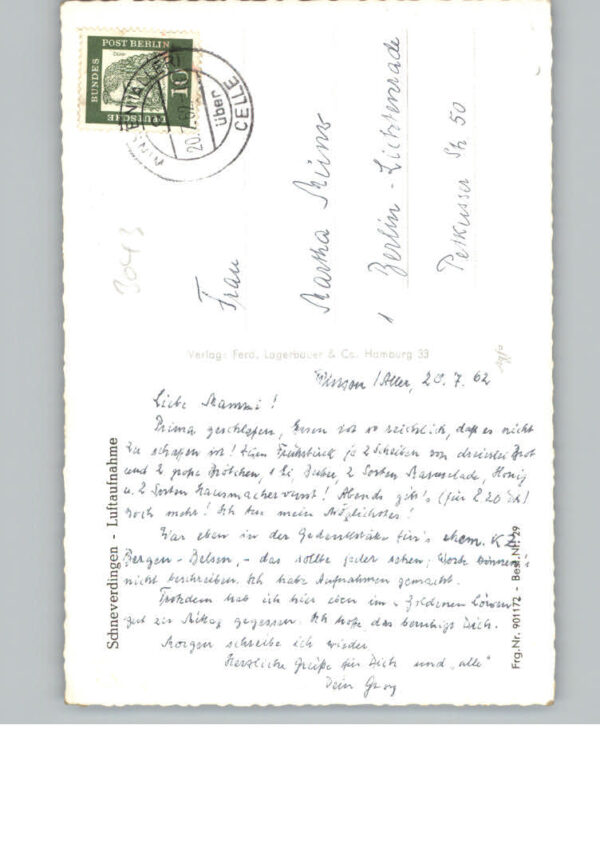 DEUTSCHE BUNDES POST BERLIN
Dürer
10
WINSEN (ALLER)
über
CELLE
20.7.62
3043
Frau
Martha
1 Berlin-Lichtenrade
Petkusser Str 50
Verlag: Ferd. Lagerbauer & Co. Hamburg 33
Schneverdingen - Luftaufnahme
Frg.Nr. 901172 - Best.Nr. 29
Winsen/Aller, 20.7.62
Liebe Mammi!
Prima geschlafen, Essen ist so reichlich, daß es nicht
zu schaffen ist! Zum Frühstück je 2 Scheiben von dreierlei Brot
und 2 große Brötchen, Butter, 2 Sorten Marmelade, Honig
u. 2 Sorten Hausmacherwurst! Abends gibt's (für 2.20 DM)
noch mehr! Ich tue mein Möglichstes!
War eben in der Gedenkstätte für's ehem. KZ
Bergen-Belsen, - das sollte jeder sehen; Worte können's
nicht beschreiben. Ich habe Aufnahmen gemacht.
Trotzdem hab ich hier eben im "Goldenen Löwen"
gut zu Mittag gegessen. Ich hoffe das beruhigt Dich.
Morgen schreibe ich wieder
Herzliche Grüße für Dich und "alle"
Dein